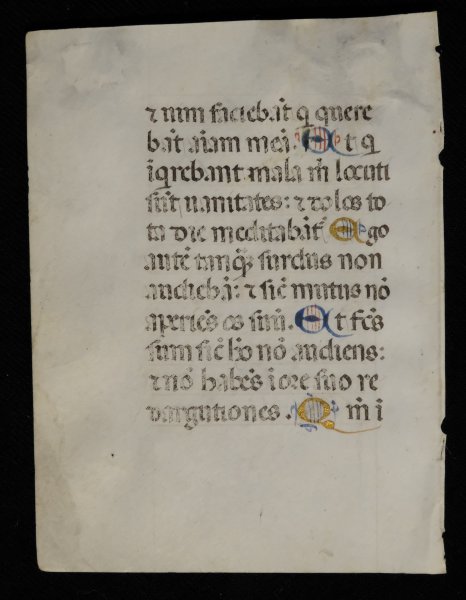 ⁊ uim faciebãt q̃ quere
bãt aĩam meã. Et q
ĩq̃rebant mala m̃ locuti
sũt uanitates: ⁊ dolos to
ta die meditabãt̃. Ego
autẽ tamq̃ surdus non
audiebã: ⁊ sič mutus nõ
aperiẽs os suũ. Et fc̃s
sum sič hõ nõ audiens:
⁊ nõ habẽs ĩ ore suo re
dargutiones. Qm̃ ĩ